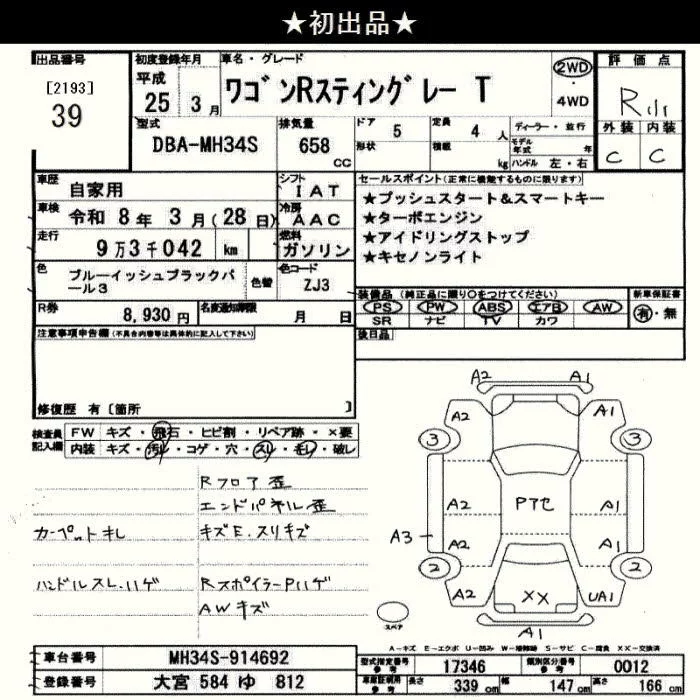 ★初出品★
出品番号
[2193]
39
初度登録年月
平成
25 3月
車名・グレード
ワゴンRスティングレー T
2WD
・
4WD
評価点
R
外装 内装
C C
型式
DBA-MH34S
排気量
658
cc
ドア
5
形状
定員
4 人
積載
kg
ディーラー・並行
モデル年式 年
ハンドル 左・右
車歴
自家用
シフト
IAT
車検
令和 8年 3月(28日)
冷房
AAC
走行
9万3千042 km
燃料
ガソリン
色
ブルーイッシュブラックパール3
色替
色コード
ZJ3
R券
8,930円
名変通知期限
月 日
セールスポイント(正常に機能するものに限ります)
★プッシュスタート&スマートキー
★ターボエンジン
★アイドリングストップ
★キセノンライト
装備品(純正品に限り○をつけてください)
新車保証書
PS PW ABS エアB AW
SR ナビ TV カワ
有・無
後日品
注意事項申告欄(不具合内容等は具体的に記入して下さい)
修復歴 有〔箇所 〕
検査員記入欄
FW キズ・飛石・ヒビ割・リペア跡・×要
内装 キズ・汚レ・コゲ・穴・スレ・毛レ・破レ
Rフロア歪
エンドパネル歪
カーペットキレ
キズE.スリキズ
ハンドルスレ.ハゲ
RスポイラーPハゲ
AWキズ
A2 A1
A2 A1
3 3
A2 P7セ A1
A3
A2 A1
2 2
A2 XX UA1
A1
スペア
A-キズ E-エクボ U-凹み W-補修跡 S-サビ C-腐食 XX-交換済
車台番号
MH34S-914692
登録番号
大宮 584 ゆ 812
型式指定番号 参考
17346
類別区分番号 参考
0012
車庫証明用 参考
長さ 339 cm
幅 147 cm
高さ 166 cm